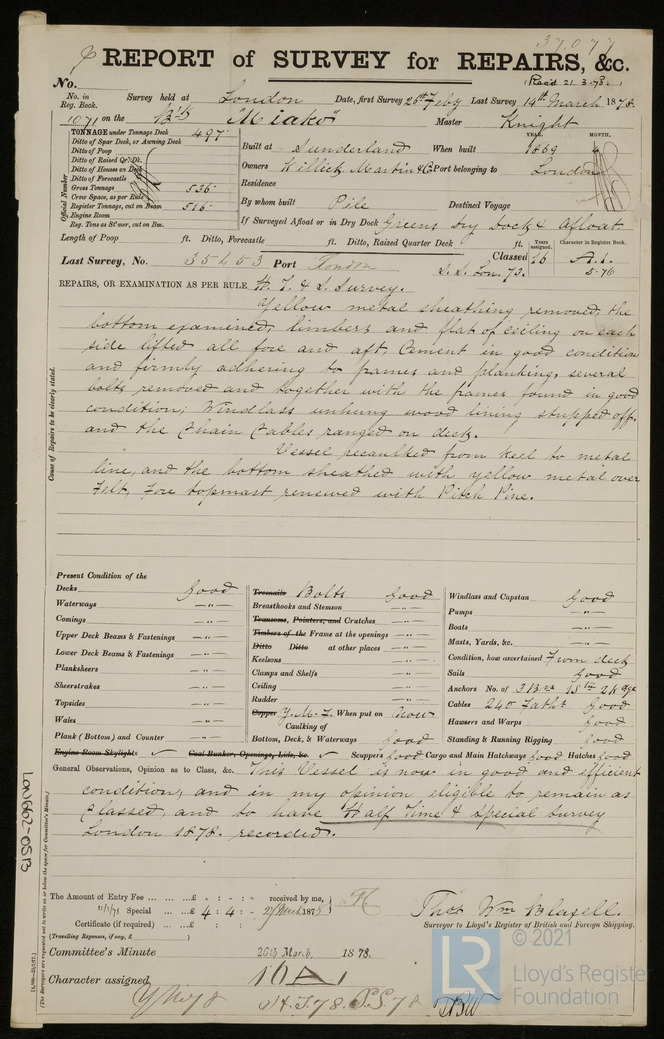 37,077
REPORT of SURVEY for REPAIRS, &c.
(Rec'd 21.3.78.)
No.
No. in Reg. Book.
Survey held at London Date, first Survey 26th Feby Last Survey 14th March 1878.
1071 on the "Miako" Master Knight
TONNAGE under Tonnage Deck 497
Ditto of Spar Deck, or Awning Deck
Ditto of Poop
Ditto of Raised Qr. Dk.
Ditto of Houses on Deck
Ditto of Forecastle
Gross Tonnage 536
Crew Space, as per Rule
Register Tonnage, cut on Beam 516
Engine Room
Reg. Tons as St'mer, cut on Bm.
Official Number
YEAR. MONTH.
Built at Sunderland When built 1869 4
Owners Killick, Martin & Co Port belonging to London
Residence
By whom built Pile Destined Voyage
If Surveyed Afloat or in Dry Dock Greens Dry Dock & Afloat.
Length of Poop ft. Ditto, Forecastle ft. Ditto, Raised Quarter Deck ft.
Years assigned. Character in Register Book.
Last Survey, No. 35653 Port London Classed 16 A.1.
S.S. Lon. 73. 5.76
REPAIRS, OR EXAMINATION AS PER RULE H. T. & S. Survey.
Yellow metal sheathing removed, the
bottom examined, limbers and flat of ceiling on each
side lifted all fore and aft, Cement in good condition
and firmly adhering to frames and planking, several
bolts removed and together with the frames found in good
condition; Windlass unhung wood lining stripped off
and the Chain Cables ranged on deck.
Vessel recaulked from keel to metal
line, and the bottom sheathed with yellow metal over
Felt, Fore topmast renewed with Pitch Pine.
Cause of Repairs to be clearly stated.
Present Condition of the
Decks good
Waterways —"—
Comings —"—
Upper Deck Beams & Fastenings —"—
Lower Deck Beams & Fastenings —"—
Planksheers —"—
Sheerstrakes —"—
Topsides —"—
Wales —"—
Plank (Bottom) and Counter —"—
Treenails Bolts good
Breasthooks and Stemson —"—
Transoms, Pointers, and Crutches —"—
Timbers of the Frame at the openings —"—
Ditto Ditto at other places —"—
Keelsons —"—
Clamps and Shelfs —"—
Ceiling —"—
Rudder —"—
Copper Y.M. When put on Now
Caulking of
Bottom, Deck, & Waterways good
Windlass and Capstan good
Pumps —"—
Boats —"—
Masts, Yards, &c. —"—
Condition, how ascertained From deck
Sails good
Anchors No. of 3 Brs 1 Stm 2 Kdge
Cables 240 Faths
Hawsers and Warps good
Standing & Running Rigging good
Engine Room Skylights ✓ Coal Bunker, Openings, Lids, &c. ✓ Scuppers good Cargo and Main Hatchways good Hatches good
General Observations, Opinion as to Class, &c. This Vessel is now in good and efficient
condition, and in my opinion eligible to remain as
Classed, and to have Half Time & Special Survey
London 1878. recorded.
The Amount of Entry Fee ... ... ...£ : : received by me,
Special ... ...£ 4 : 4 : 1878
Certificate (if required) ...
(Travelling Expenses, if any, £ )
Thos Wm Blaxell.
Surveyor to Lloyd's Register of British and Foreign Shipping.
Committee's Minute 26th March. 1878.
Character assigned 16 A 1
H.T. 78. S.S. 78.
LON1662-0513
© 2021
LR
Lloyd's Register
Foundation